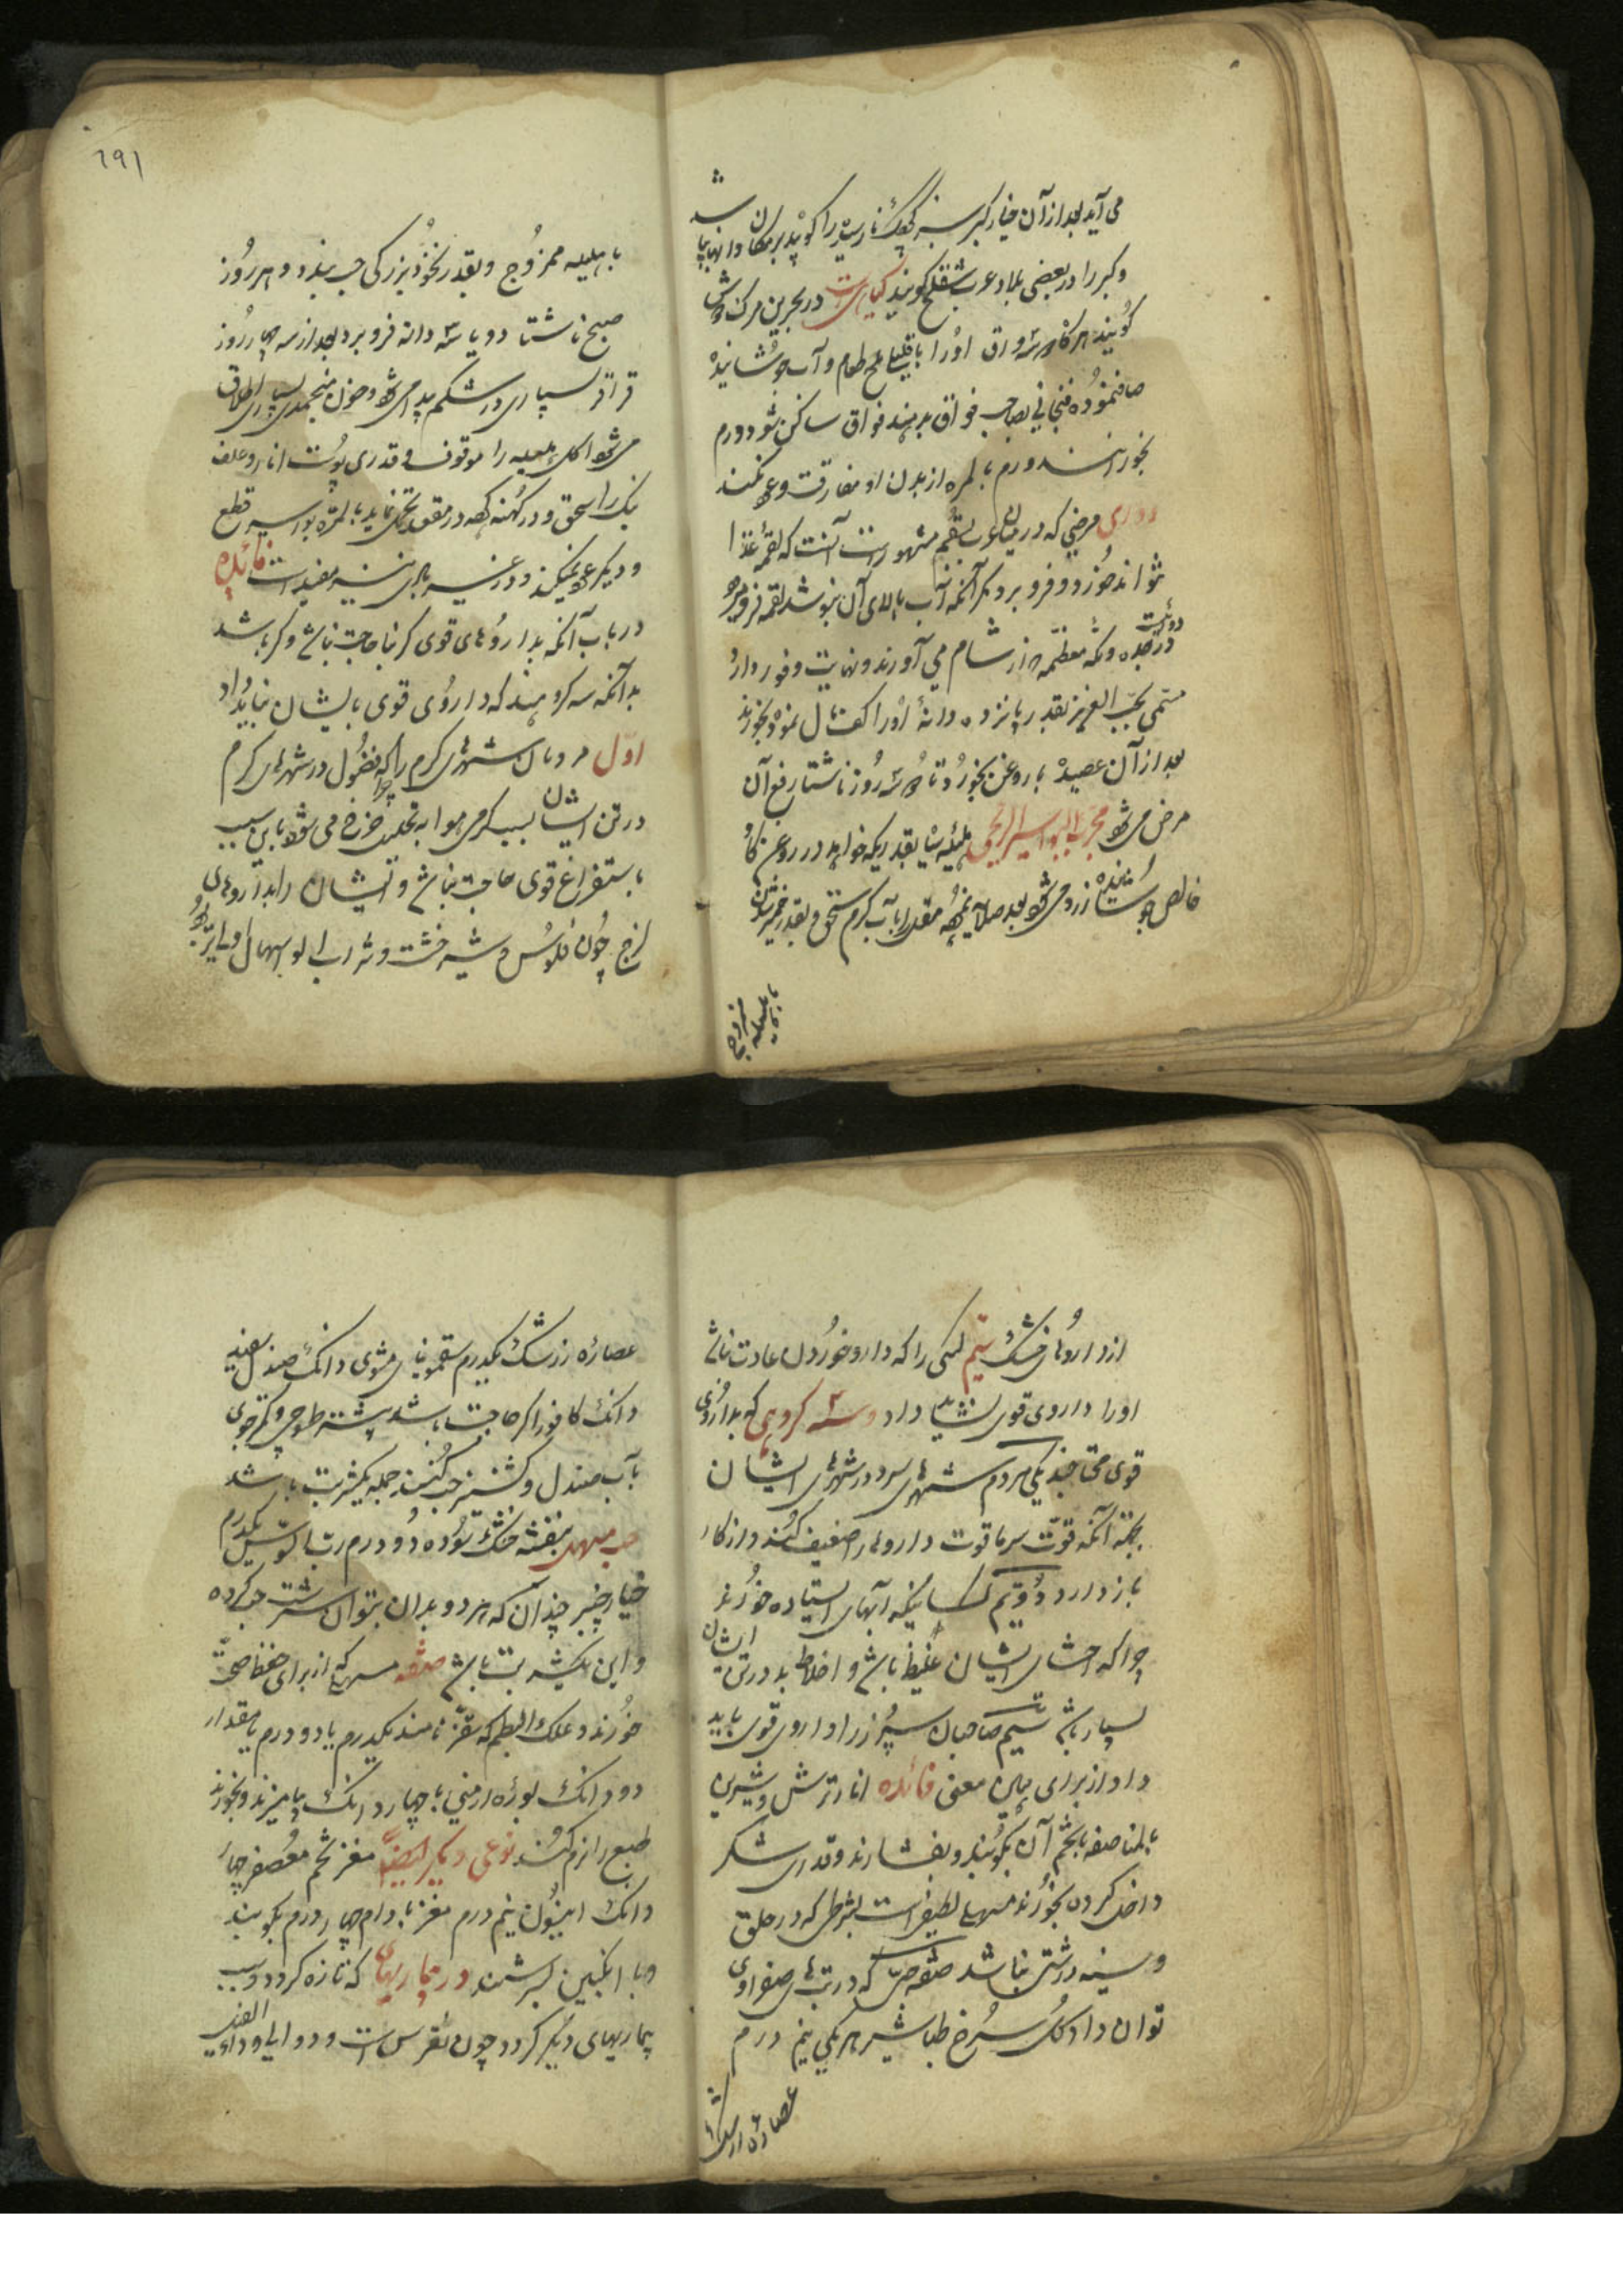 می آید بعد از آن خیار کبر سبز کوچک نارسیده را کوبیده بر مکان وابهابیا شد
و کبر را در بعضی بلاد عرب شفلح گویند گیاهیست در بحرین مرک موش
گویند هرگاه سه ورق او را با قلیلی ملح طعام و آب جوشانیده
صافنموده فنجانی بصاحب فواق بدهند فواق ساکن شود و ورم
بخورانند ورم بالمره از بدن او مفارقت و عود نکند
مرضی که در میان عرب بلقم مشهور است آنست که لقمهٔ غذا
نتواند خورد و فرو برد مگر آنکه آب بالای آن بنوشد لقمه فرو میرود
در جده و مکه معظمه از شام می آورند و نهایت وفور دارد دوائیست
مسمی بحب العزیز بقدر پانزده دانهٔ او را کفتمال نموده بخورند
بعد از آن عصیده با روغن بخورد تا سه روز ناشتا رفع آن
مرض میشود مجرب لبواسیر الریحی هلیلهٔ سیاه بقدریکه خواهد در روغن گاو
خالص جوشانیده زرد میشود بعد صلایه نموده مقل را بآب گرم سحق و بقدر خمیر شدن
با هلیله ممزوج
با هلیله ممزوج و بقدر نخود بزرگی حب بندد و هر روز
صبح ناشتا دو یا سه دانه فرو برد بعد از سه چهار روز
قراقر بسیاری در شکم پیدا میشود و خون منجمدی بسیاری اطلاق
میشود اکل هلیله را موقوف و قدری پوست انار و علف
نیک را سحق و در کهنه کرده در مقعد تحمل نماید بالمره بواسیر قطع
و دیگر عود نمیکند و در غیر بادی نیز مفید است فائده
در باب آنکه بداروهای قوی کرا حاجت نباشد و کرا باشد
بدانکه سه گروهند که داروی قوی بایشان نباید داد
اول مردمان شهرهای گرم را چرا که فضول در شهرهای گرم
در تن ایشان بسبب گرمی هوا به تحلیل خرج می شود باین سبب
باستفراغ قوی حاجت نباشد و ایشان را بداروهای
لزج چون فلوس و شیرخشت و شراب آلو اسهال اولی تر بود
از داروهای خشک سیم کسی را که دارو خوردن عادت نباشد
او را داروی قوی نشاید داد و سه گروهی که بداروی
قوی محتاجند یکی مردم شهرهای سرد در شهرهای ایشان
بجهة آنکه قوت سرما قوت داروها را ضعیف کند و از کار
باز دارد دویم کسانیکه آبهای ایستاده خورند
چرا که احشای ایشان غلیظ باشد و اخلاط بد در تن ایشان
بسیار باشد سیم صاحبان سپرز را داروی قوی باید
داد از برای همین معنی فائده انار ترش و شیرین
بالمناصفه با شحم آن بکوبند و بفشارند و قدری شکر
داخل کرده بخورند مسهلی لطیف است بشرطی که در حلق
و سینه درشتی نباشد صفة حب که در تبهای صفراوی
توان داد گل سرخ طباشیر هر یکی نیم درم
عصارهٔ زرشک
عصارهٔ زرشک یکدرم سقمونیای مشوی دانگ صندل سفید
دانگ کافور اگر حاجت باشد بیشتر طسوجی و کمتر جوی
بآب صندل و کشنیز حب کنند جمله یکشربت باشد
حب مسهل بنفشه خشک سوده دو درم رب السوس یکدرم
خیارچنبر چندان که هر دو بدان بتوان سرشت حب کرده
و این یکشربت باشد صفة مسهلی که از برای حفظ صحت
خورند علک البطم که سقز نامند یکدرم یا دو درم با مقدار
دو دانگ بورهٔ ارمنی یا چهار دانگ بیامیزند و بخورند
طبع را نرم کند نوعی دیگر ایضا مغز تخم معصفر چهار
دانگ انیسون نیم درم مغز بادام چهار درم بکوبند
و با انگبین بسرشند در بیماریهای که تازه گردد و سبب
بیماریهای دیگر گردد چون نقرس است و دوالی و داء الفیل
۱۹۱